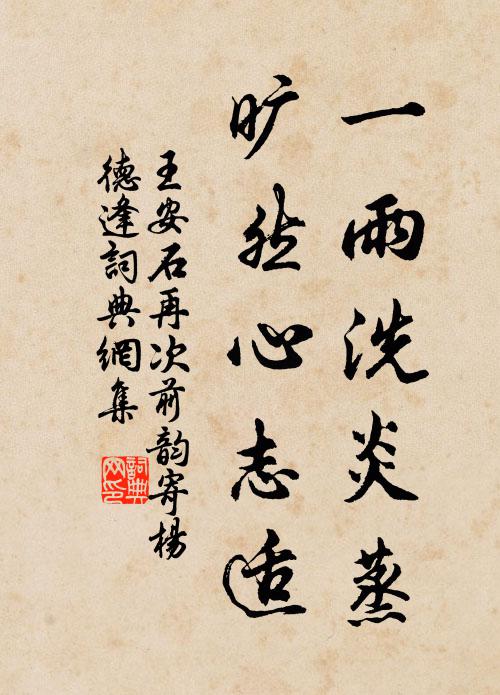 一雨洗炎蒸
旷然心志适
王安石再次前韵寄杨
德逢词典网集
词典网印